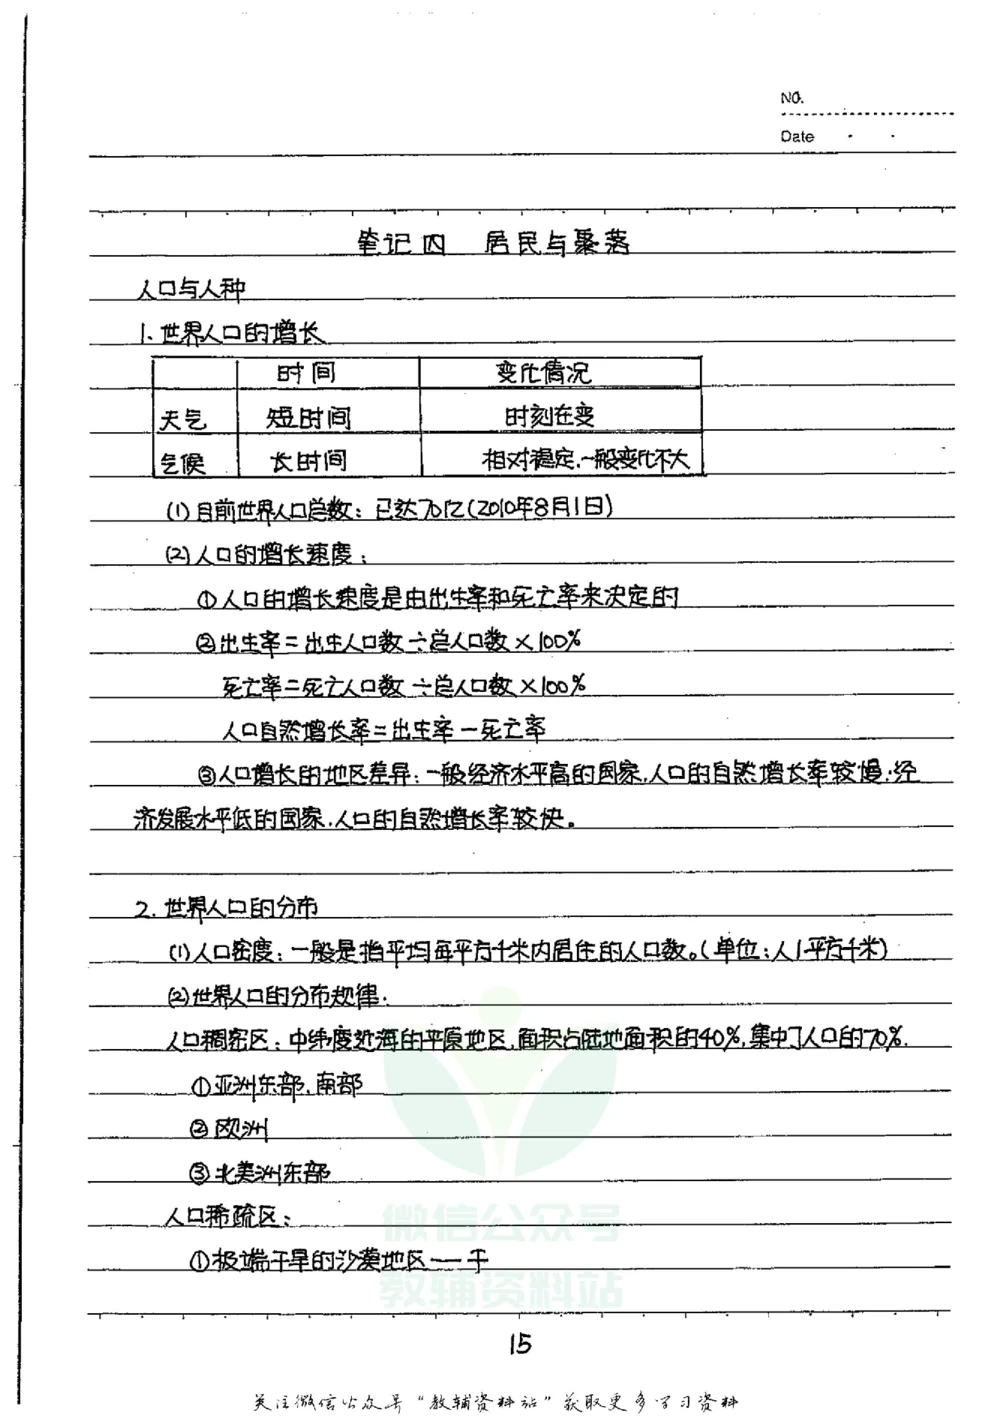 NO.
Date
笔记四 居民与聚落
人口与人种
1. 世界人口的增长
时间 变化情况
天气 短时间 时刻在变
气候 长时间 相对稳定,一般变化不大
(1)目前世界人口总数:已达70亿(2010年8月1日)
(2)人口的增长速度:
①人口的增长速度是由出生率和死亡率来决定的
②出生率=出生人口数÷总人口数×100%
死亡率=死亡人口数÷总人口数×100%
人口自然增长率=出生率-死亡率
③人口增长的地区差异:一般经济水平高的国家,人口的自然增长率较慢;经
济发展水平低的国家,人口的自然增长率较快。
2. 世界人口的分布
(1)人口密度:一般是指平均每平方千米内居住的人口数。(单位:人/平方千米)
(2)世界人口的分布规律.
人口稠密区:中纬度近海的平原地区,面积占陆地面积的40%,集中了人口的70%.
①亚洲东部,南部
②欧洲
③北美洲东部
人口稀疏区:
微信公众号
①极端干旱的沙漠地区——干
教辅资料站
15
关注微信公众号“教辅资料站”获取更多学习资料